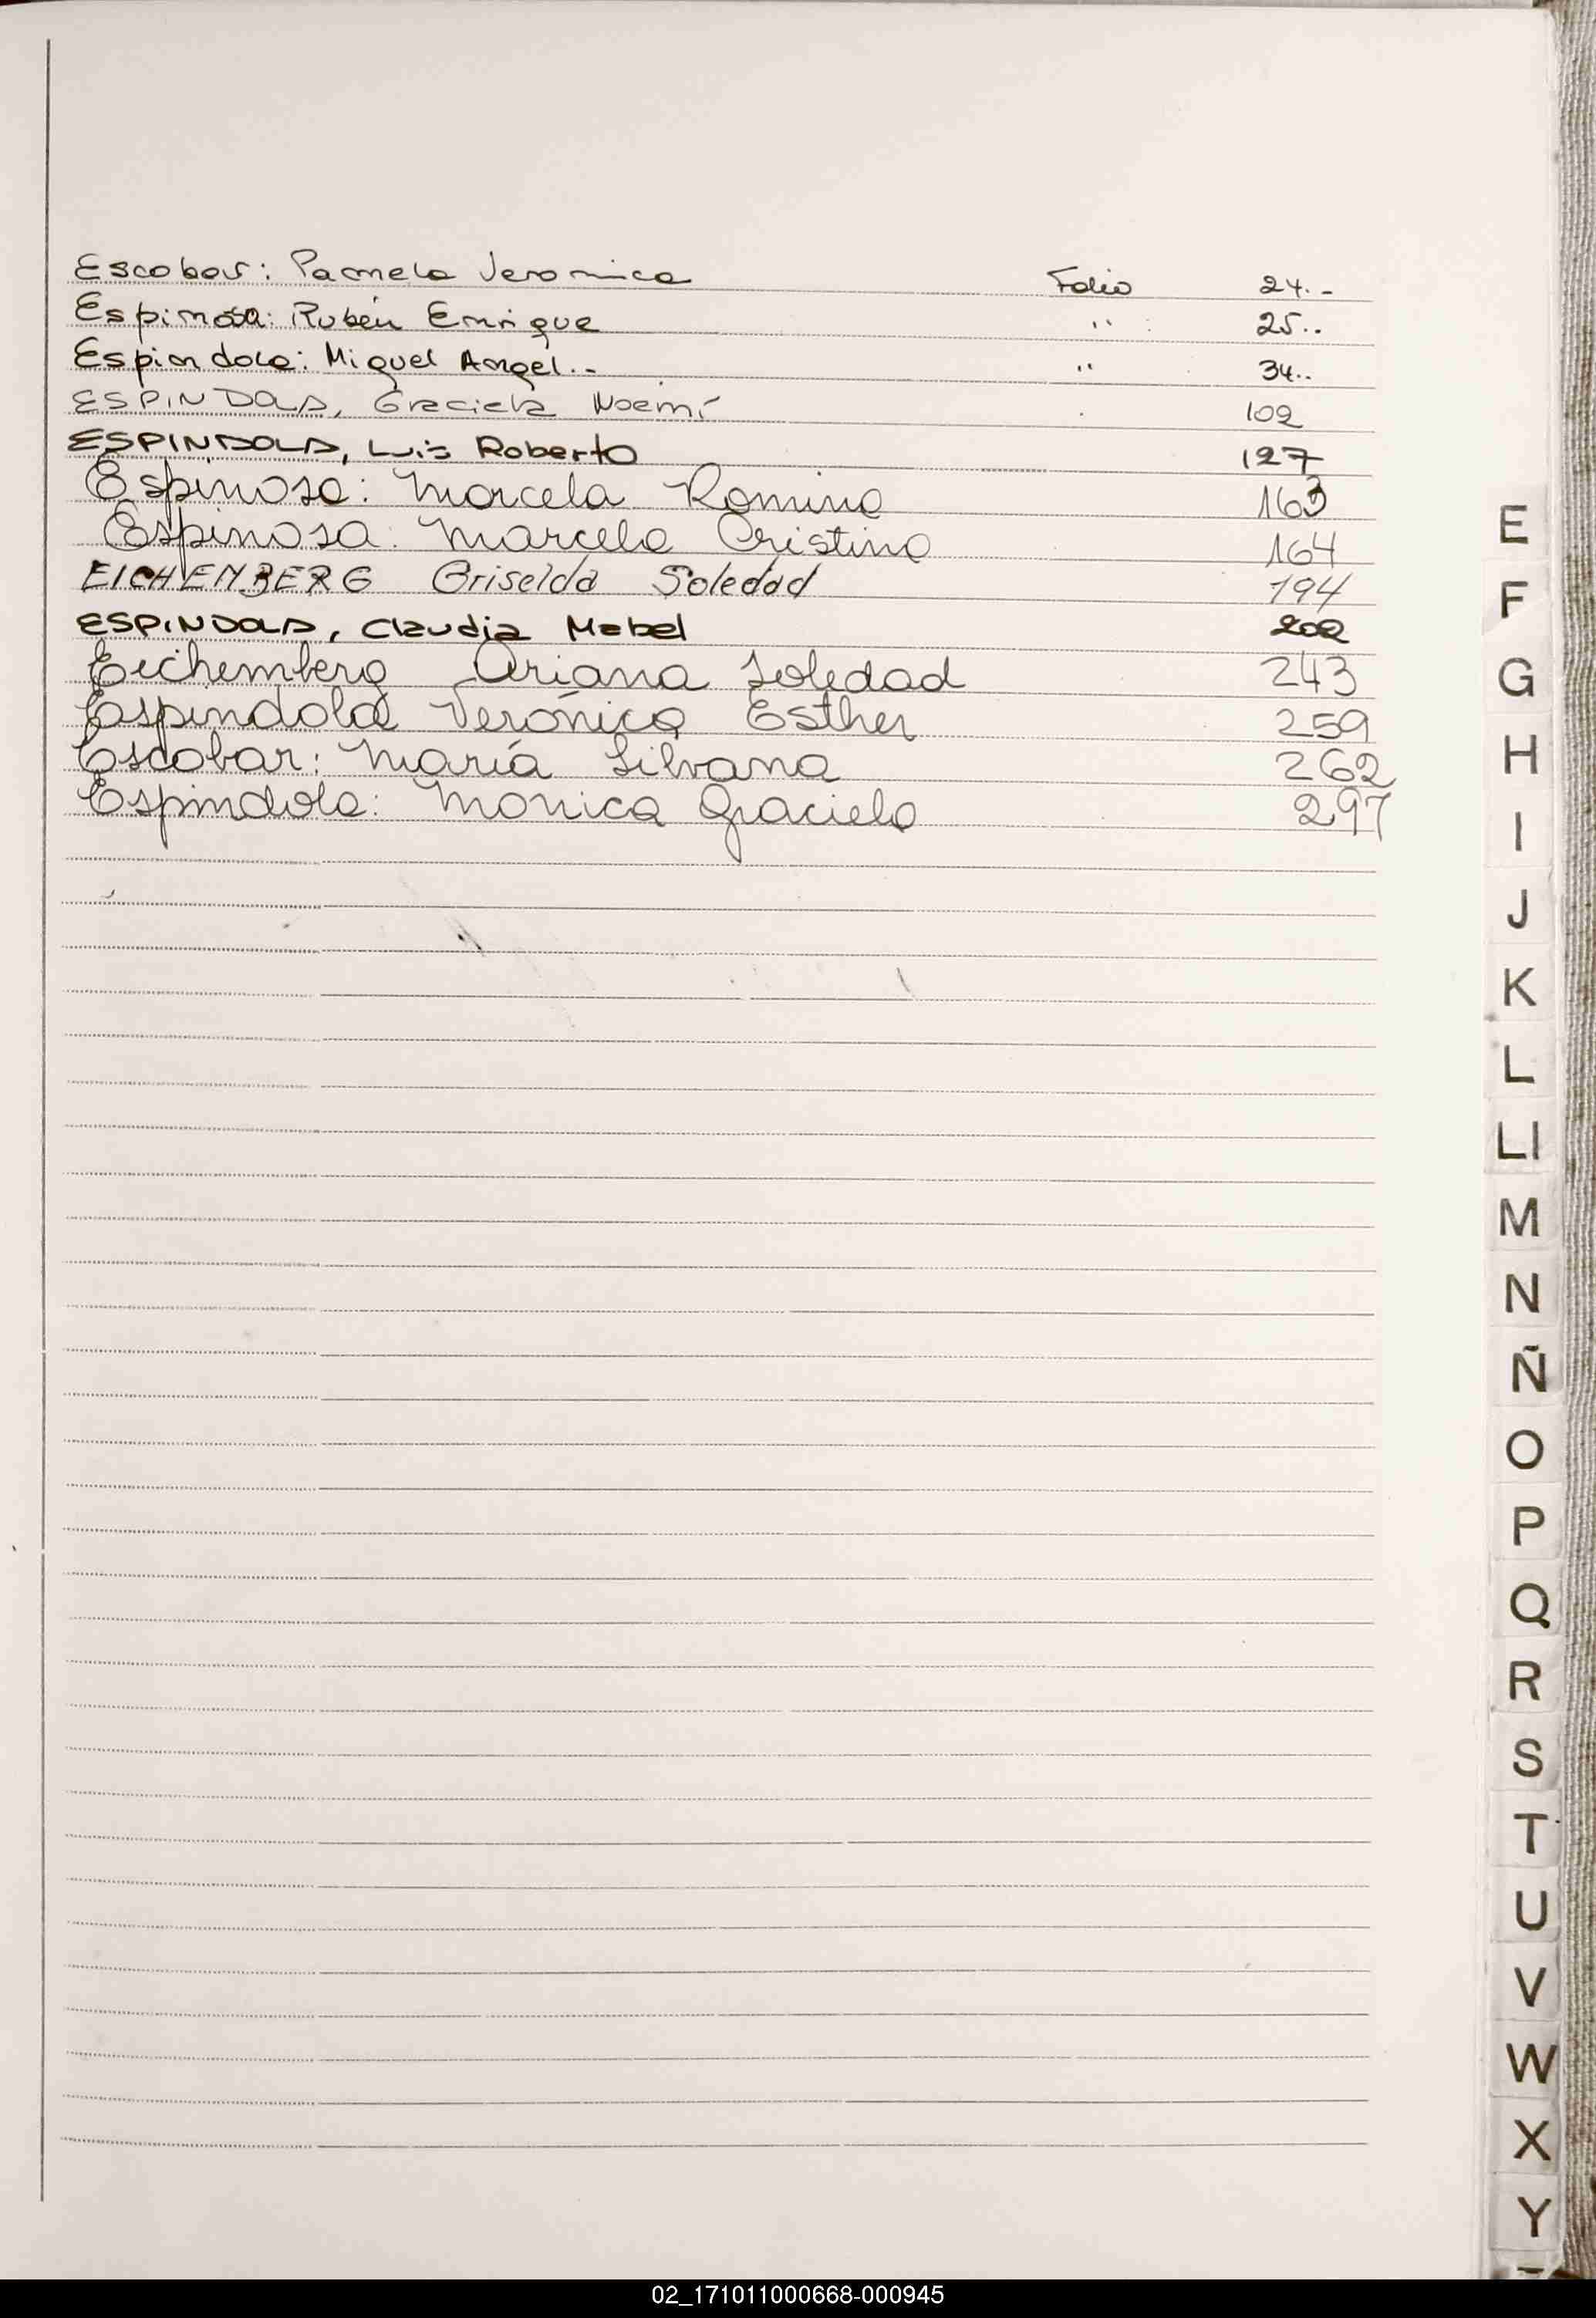 Escobar: Pamela Veronica Folio 24.-
Espinosa: Rubén Enrique " 25..
Espindola: Miguel Angel.- " 34..
ESPINDOLA, Graciela Noemí 102
ESPINDOLA, Luis Roberto 127
Espinosa: Marcela Romina 163
Espinosa: Marcela Cristina 164
EICHEMBERG Griselda Soledad 194
ESPINDOLA, Claudia Mabel 202
Eichemberg Ariana Soledad 243
Espindola Verónica Esther 259
Escobar: María Silvana 262
Espindola: Monica Graciela 297
E
F
G
H
I
J
K
L
Ll
M
N
Ñ
O
P
Q
R
S
T
U
V
W
X
Y
02_171011000668-000945